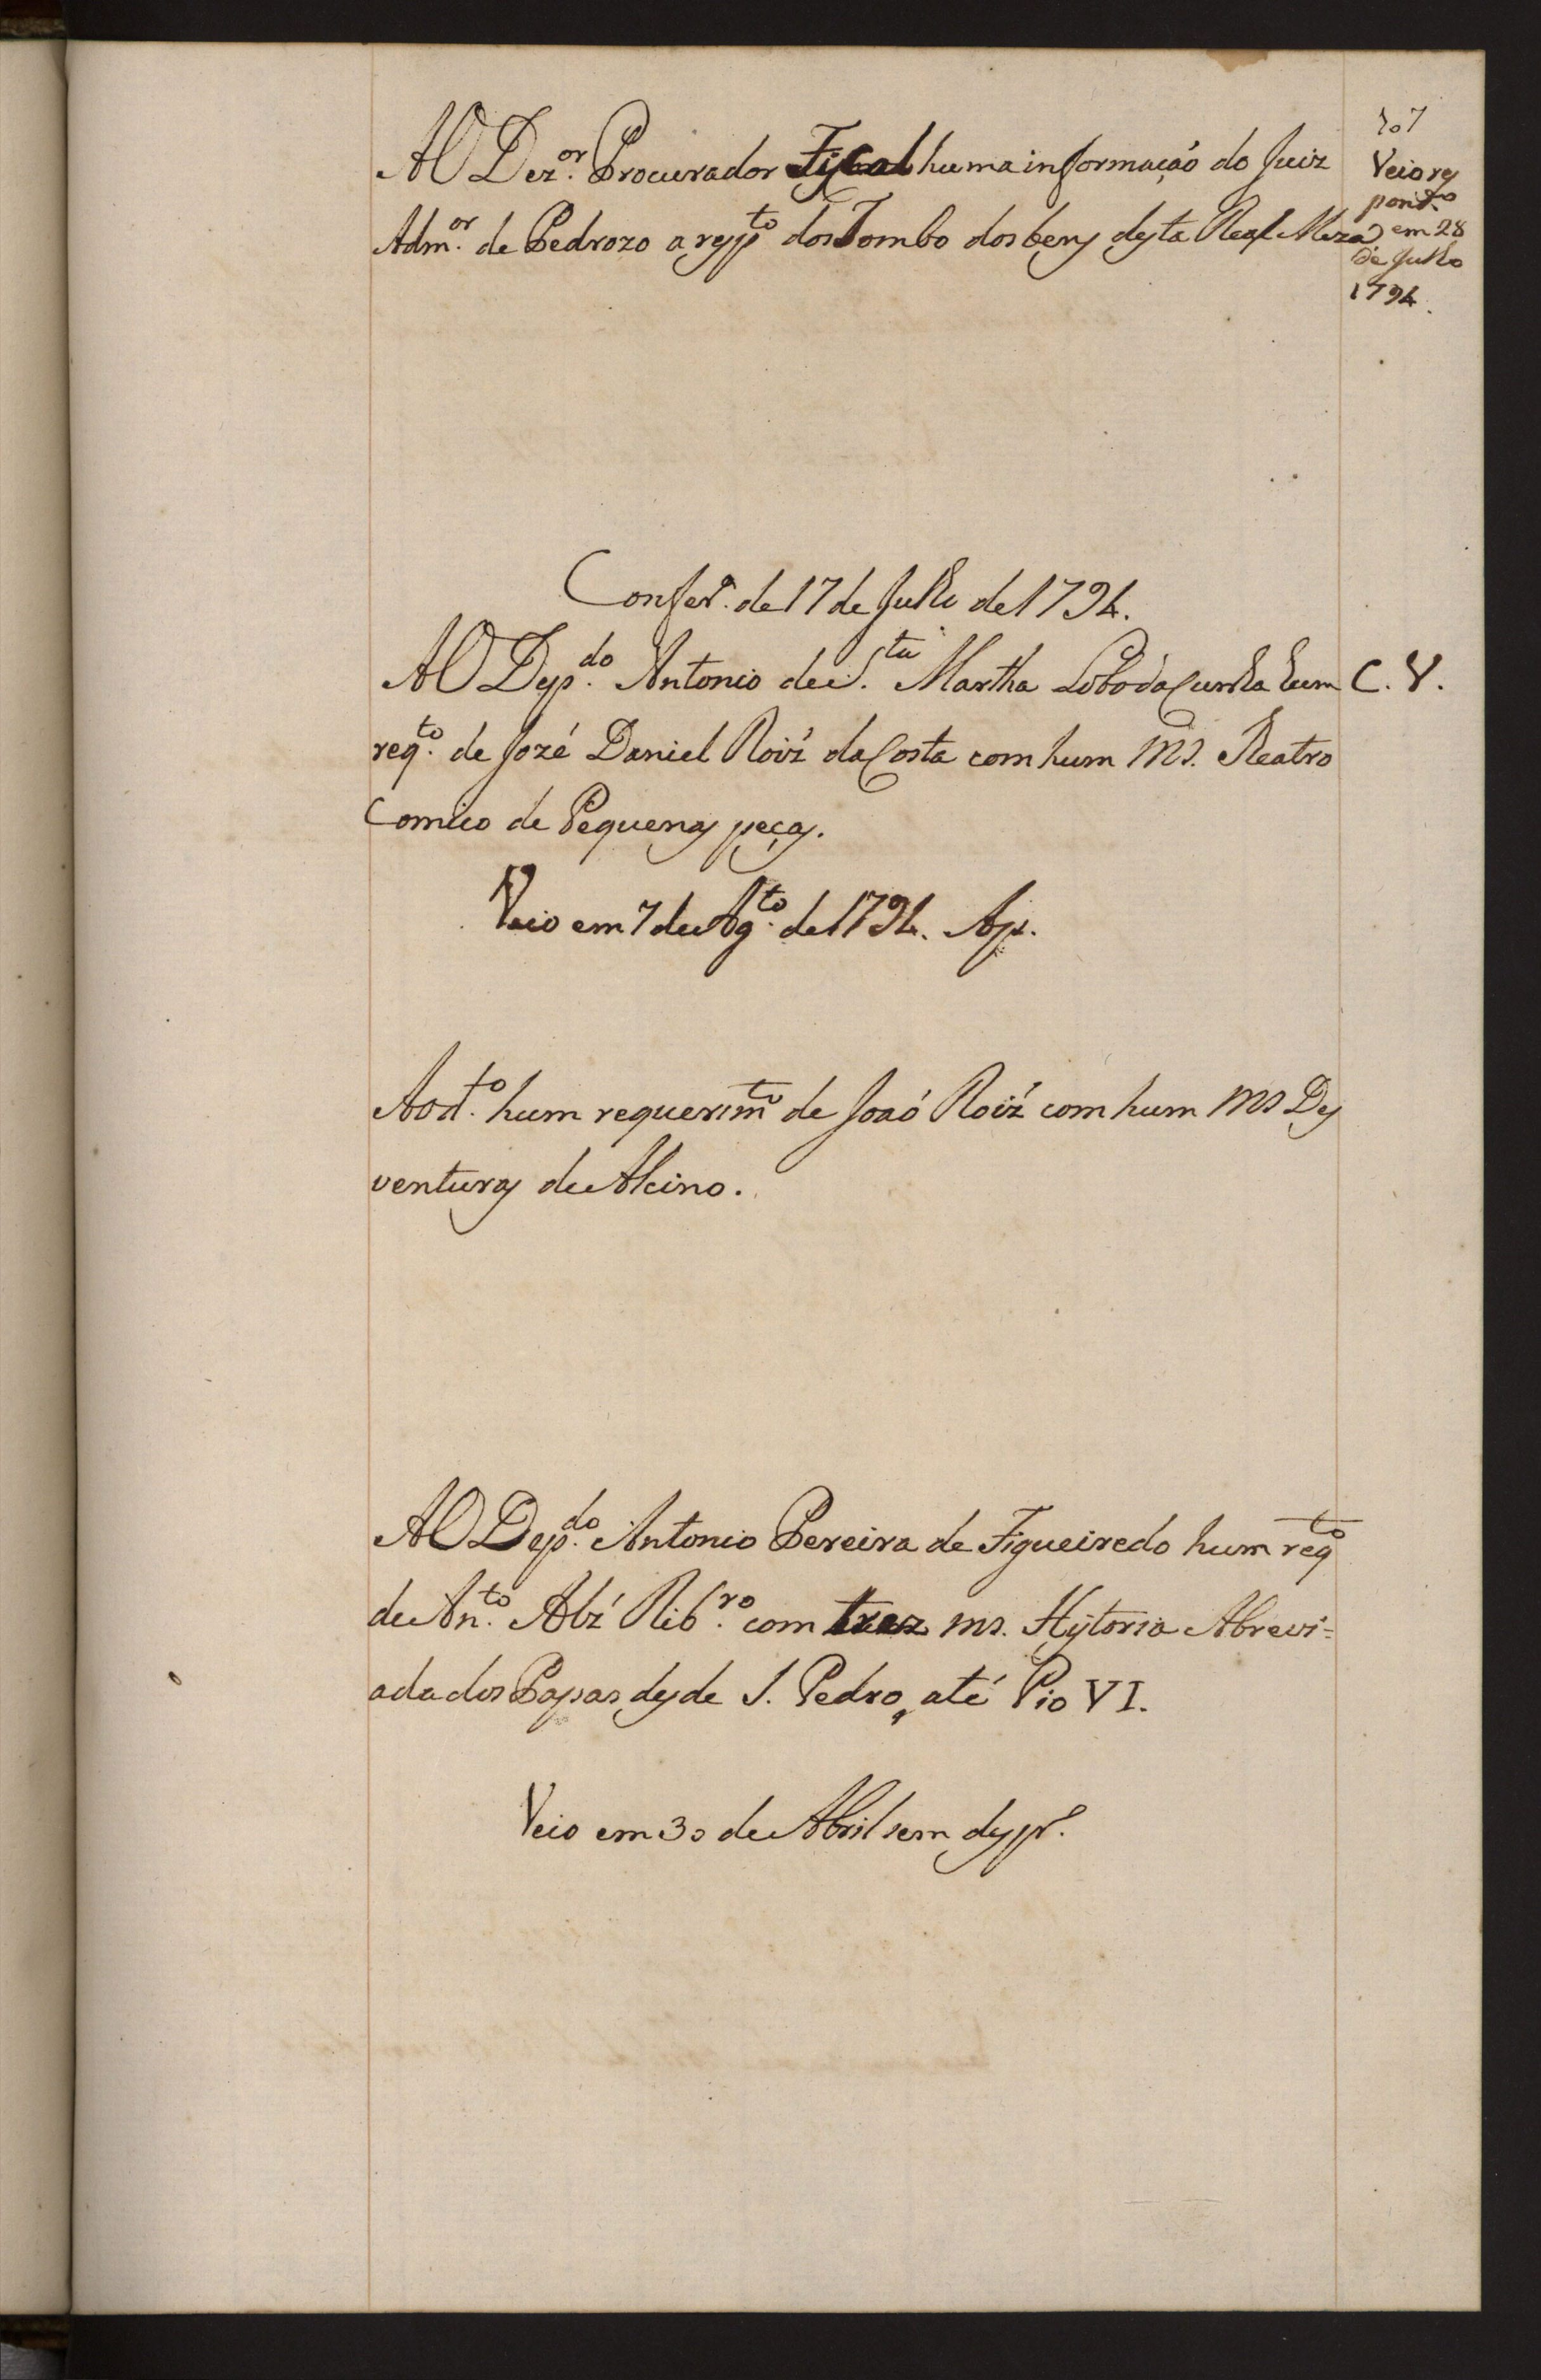 107
AO Dez.or Procurador Fiscal huma informaçaó do Juiz
Adm.or de Pedrozo a resp.to dos Tombo dos bens desta Real Meza
Veio res
pond.o
em 28
de Julho
1794.
Confer.a de 17 de Julho de 1794.
AO Dep.do Antonio de S.ta Martha Lobo da Cunha hum C. V.
req.to de Jozé Daniel Roiz da Costa com hum MS. Theatro
Comico de Pequenas peças.
Veio em 7 de Ag.to de 1794. Ap.
Ao d.to hum requerim.to de Joaó Roiz com hum MS Des
venturas de Alcino.
AO Dep.do Antonio Pereira de Figueiredo hum req.to
de An.to Alz Rib.ro com trez ms. Historia Abrevi=
ada dos Papas desde S. Pedro, até Pio VI.
Veio em 30 de Abril sem desp.o